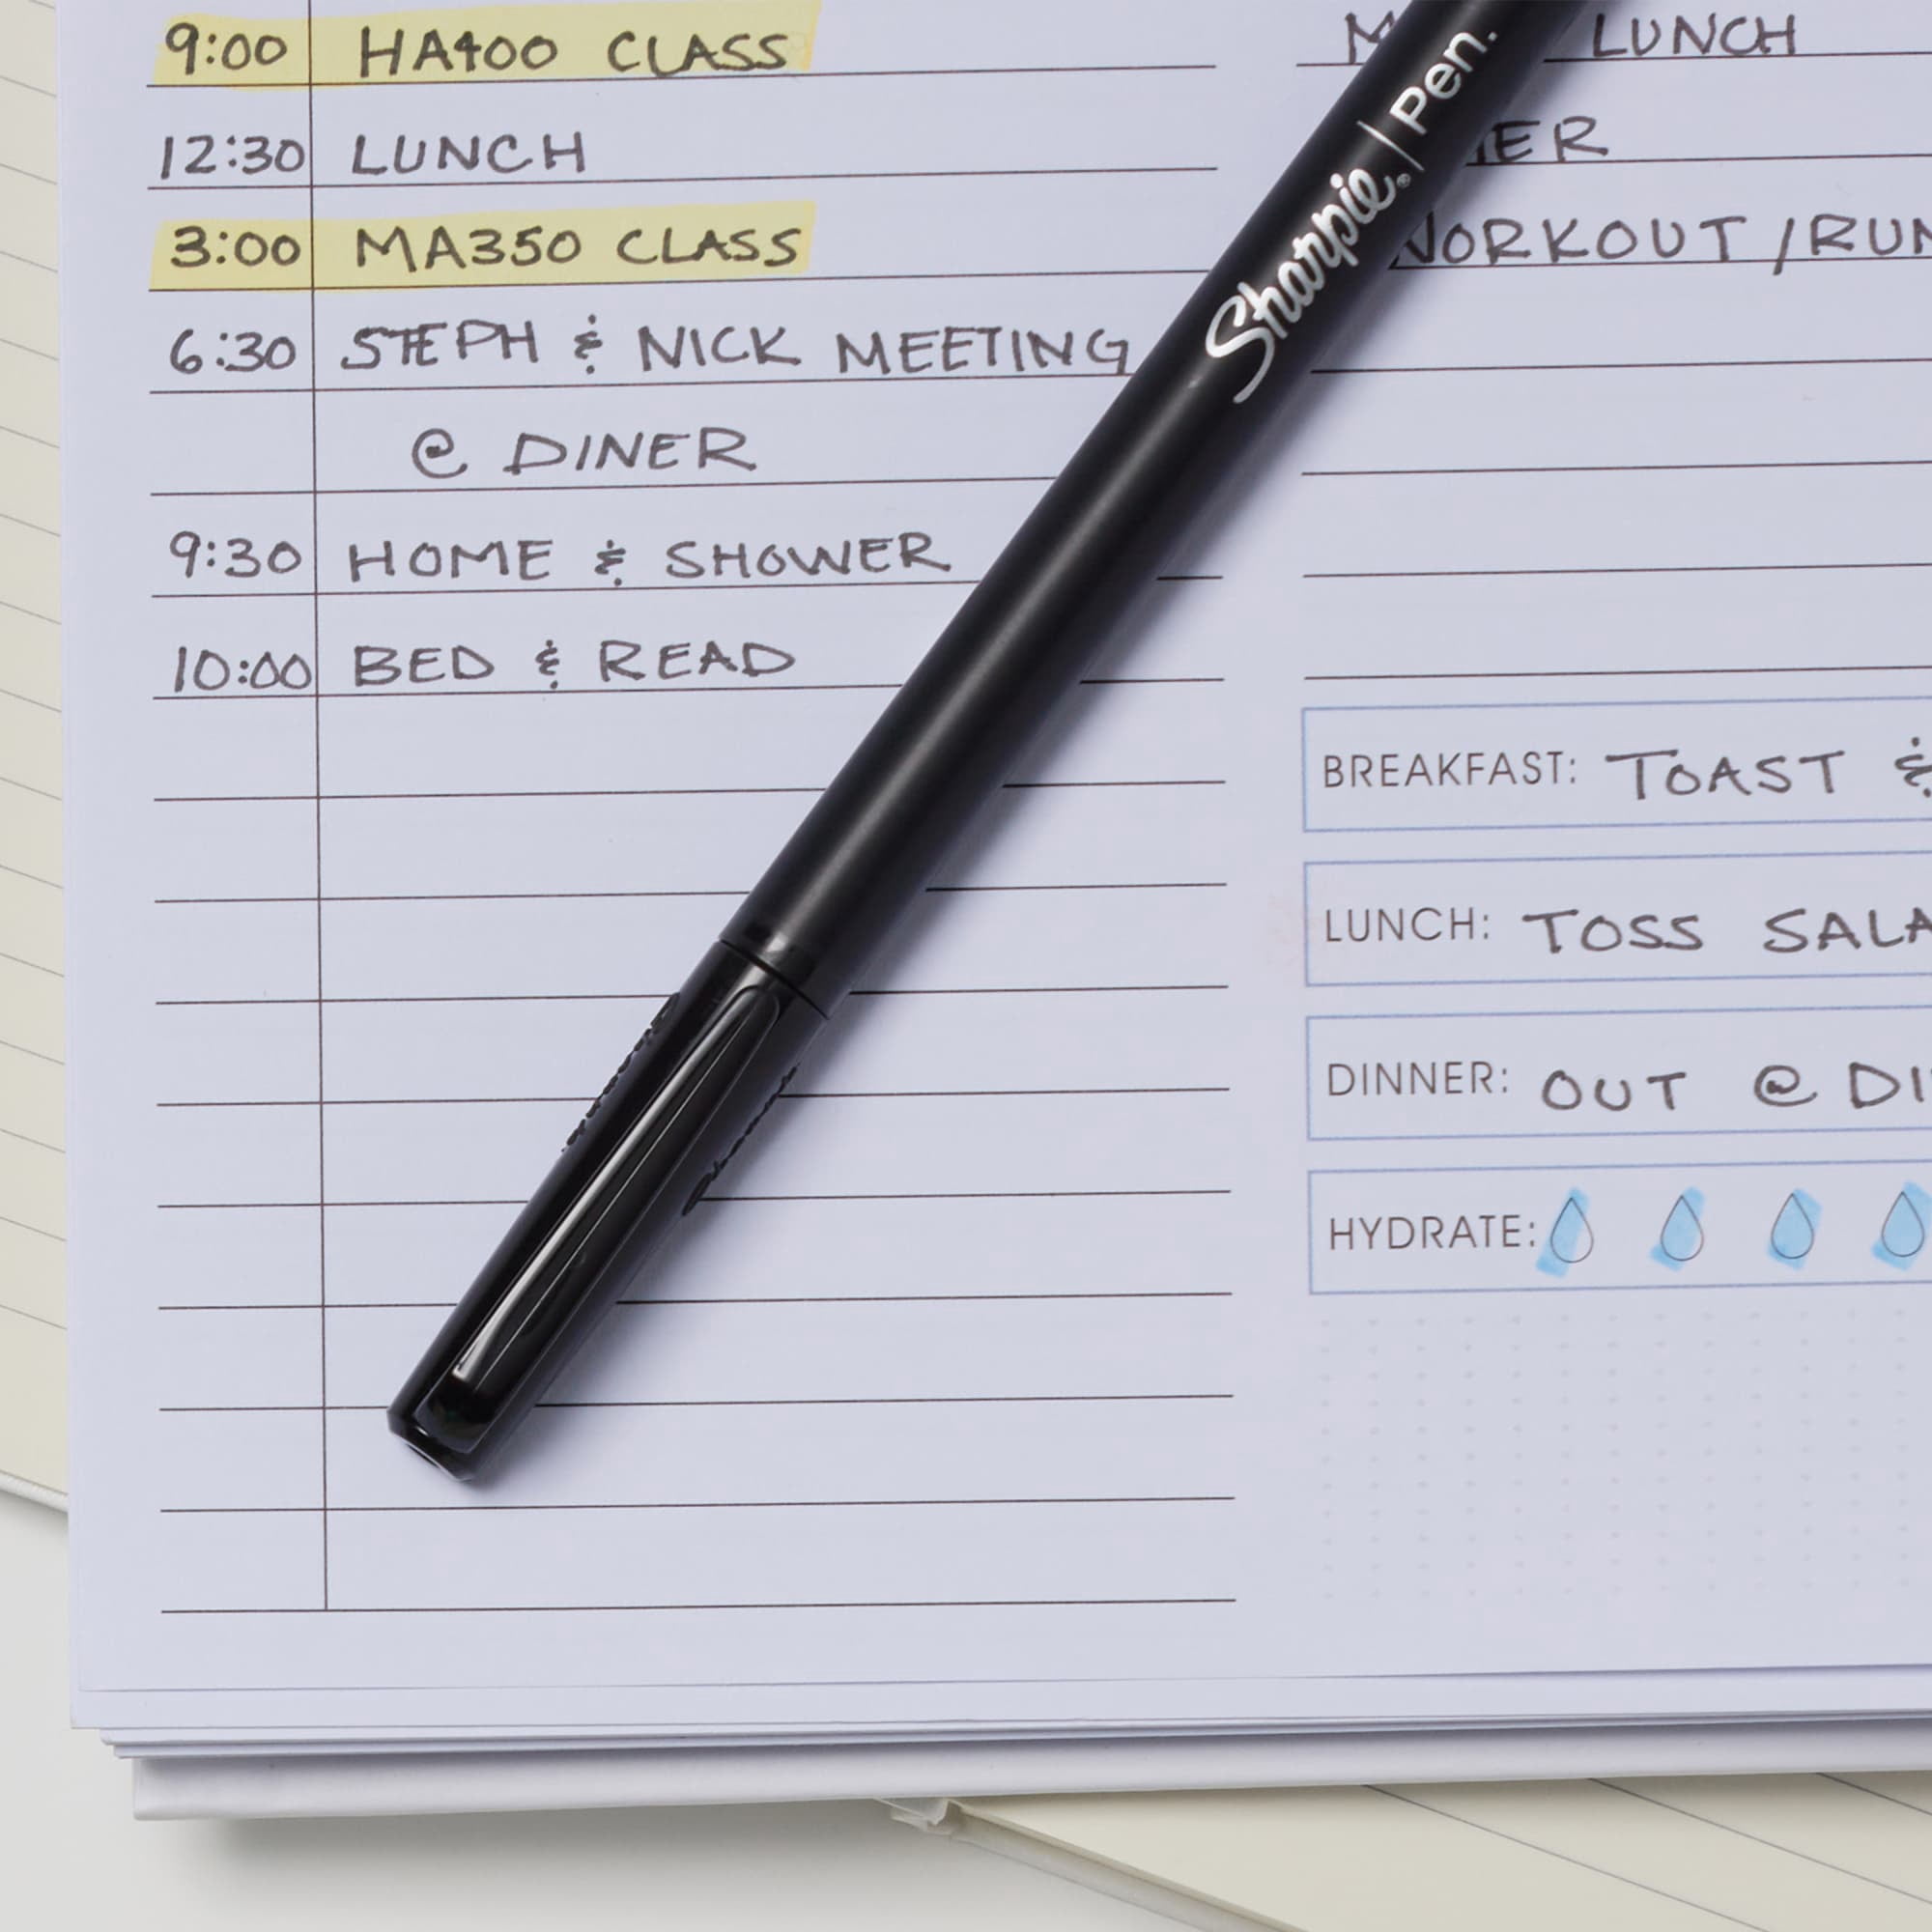 9:00 HA400 CLASS
12:30 LUNCH
3:00 MA350 CLASS
6:30 STEPH & NICK MEETING
@ DINER
9:30 HOME & SHOWER
10:00 BED & READ
LUNCH
WORKOUT / RUN
Sharpie® | Pen.
BREAKFAST: TOAST &
LUNCH: TOSS
DINNER: OUT @
HYDRATE: